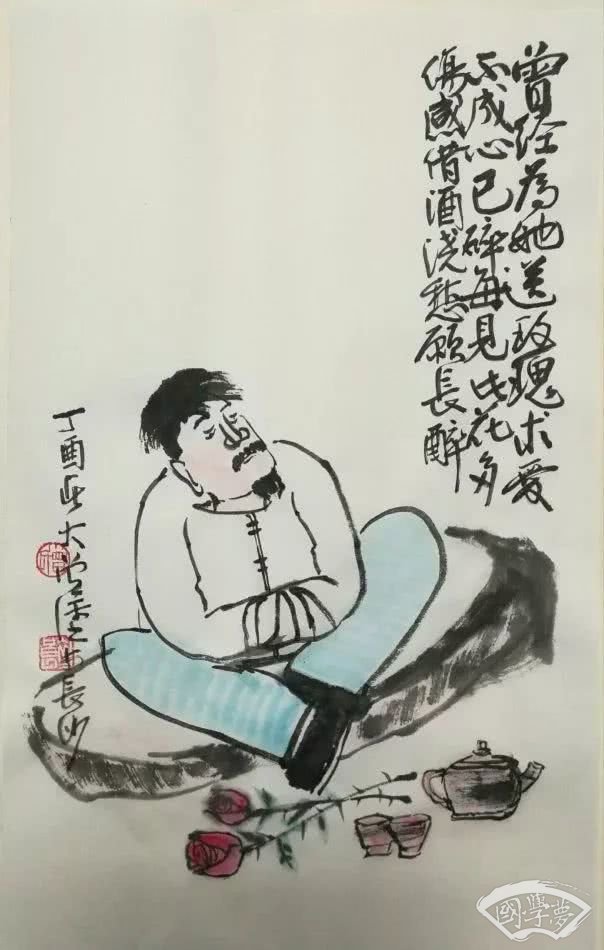 曾经为她送玫瑰求爱
不成心已碎每见此花多
傷感借酒浇愁愿長醉
丁酉
長沙
國學夢